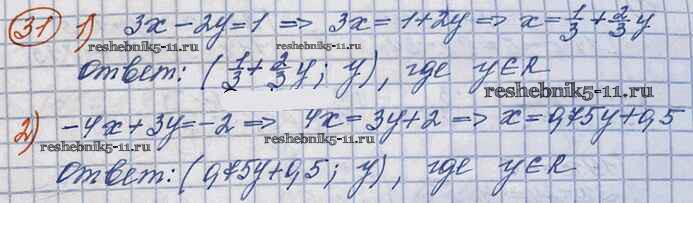 31 1) 3x - 2y = 1 => 3x = 1 + 2y => x = 1/3 + 2/3 y
reshebnik5-11.ru reshebnik5-11.ru
Ответ: (1/3 + 2/3 y; y), где y ∈ R
reshebnik5-11.ru
2) -4x + 3y = -2 => 4x = 3y + 2 => x = 0,75y + 0,5
reshebnik5-11.ru reshebnik5-11.ru
Ответ: (0,75y + 0,5; y), где y ∈ R